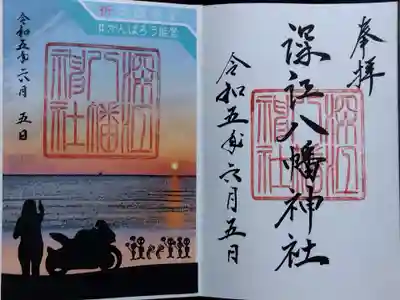 #がんばろう能登
令和五年六月五日
深江八幡神社
奉拝
深江八幡神社
深江八幡神社
令和五年六月五日